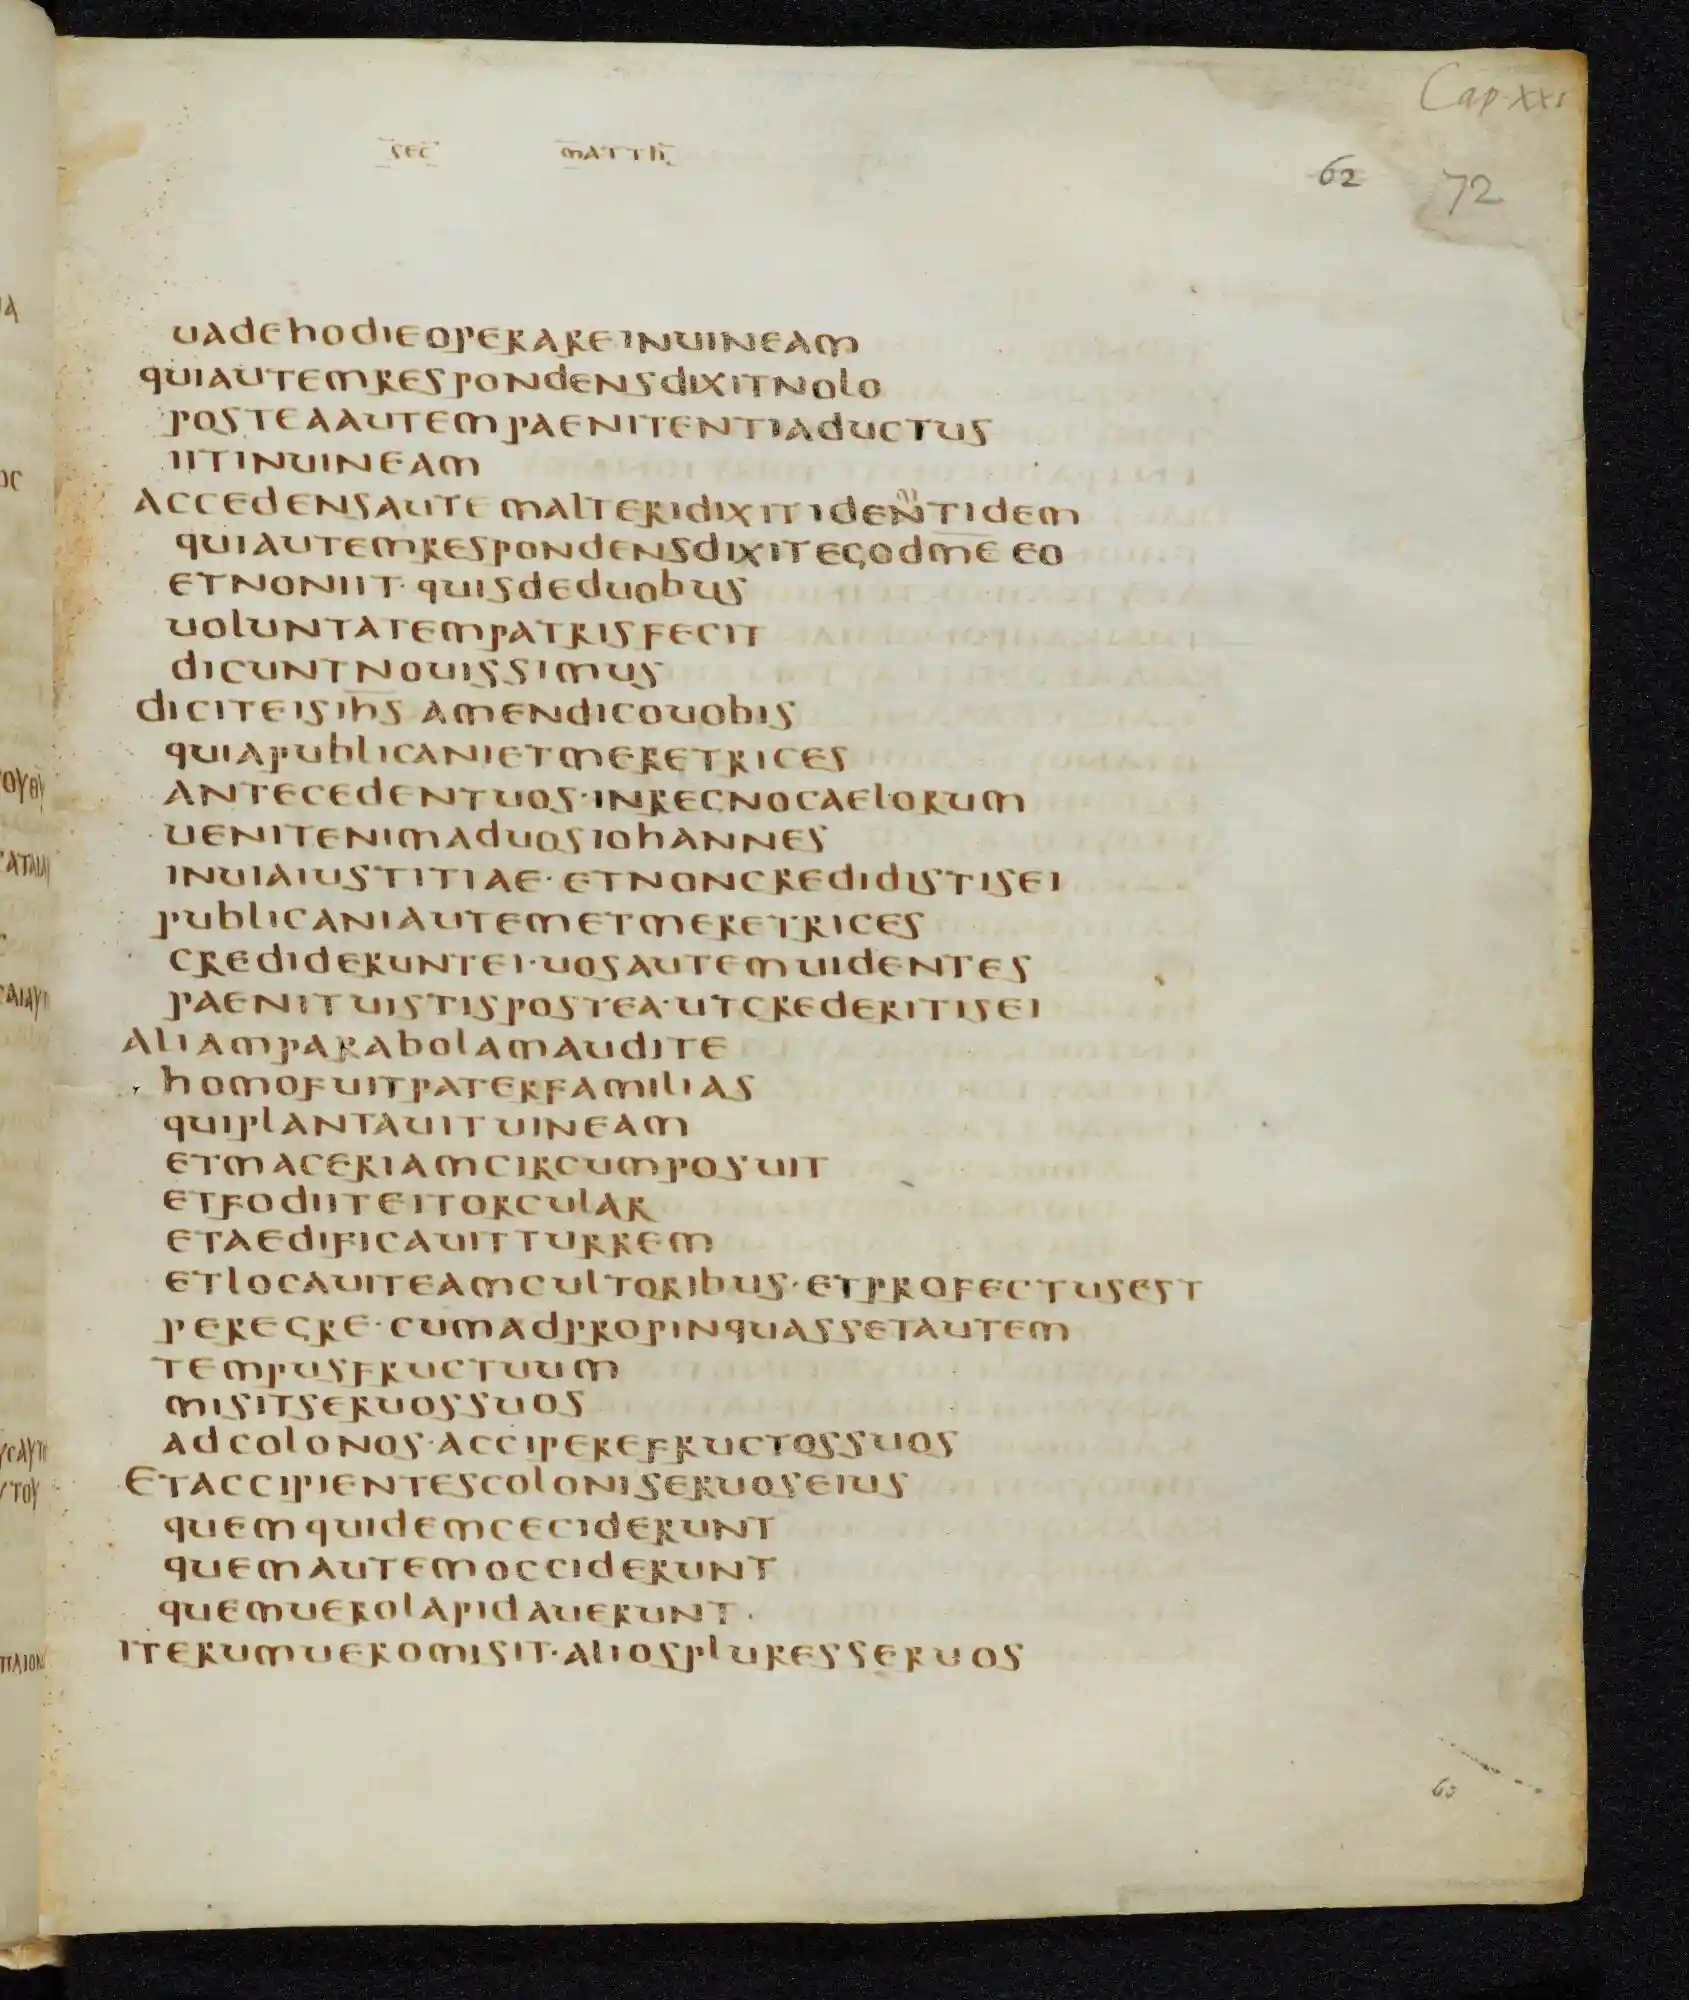 Cap. XXI
SEC MATTH
62 72
UADEHODIEOPERAREINUINEAM
QUIAUTEMRESPONDENSDIXITNOLO
POSTEAAUTEMPAENITENTIADUCTUS
IITINUINEAM
ACCEDENSAUTEMALTERIDIXITIDENTIDEM
QUIAUTEMRESPONDENSDIXITEGODME EO
ETNONIIT·QUISDEDUOBUS
UOLUNTATEMPATRISFECIT
DICUNTNOUISSIMUS
DICITEISIHS AMENDICOUOBIS
QUIAPUBLICANIETMERETRICES
ANTECEDENTUOS·INREGNOCAELORUM
UENITENIMADUOSIOHANNES
INUIAIUSTITIAE·ETNONCREDIDISTISEI
PUBLICANIAUTEMETMERETRICES
CREDIDERUNTEI·UOSAUTEMUIDENTES
PAENITUISTISPOSTEA·UTCREDERITISEI
ALIAMPARABOLAMAUDITE
HOMOFUITPATERFAMILIAS
QUIPLANTAUITUINEAM
ETMACERIAMCIRCUMPOSUIT
ETFODIITEITORCULAR
ETAEDIFICAUITTURREM
ETLOCAUITEAMCULTORIBUS·ETPROFECTUSEST
PEREGRE·CUMADPROPINQUASSETAUTEM
TEMPUSFRUCTUUM
MISITSERUOSSUOS
ADCOLONOS·ACCIPEREFRUCTOSSUOS
ETACCIPIENTESCOLONISERUOSEIUS
QUEMQUIDEMCECIDERUNT
QUEMAUTEMOCCIDERUNT
QUEMUEROLAPIDAUERUNT·
ITERUMUEROMISIT·ALIOSPLURESSERUOS